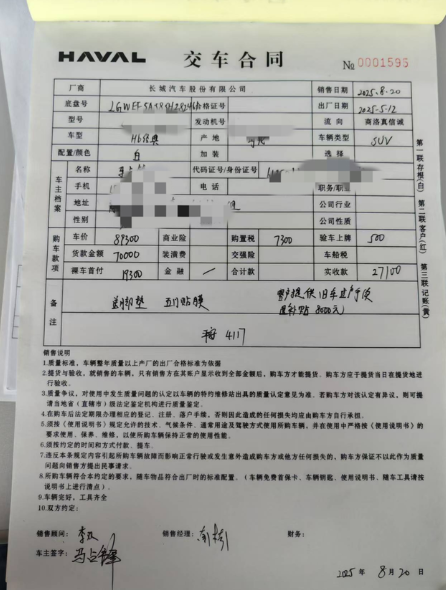 HAVAL 交车合同 № 0001596
厂商 长城汽车股份有限公司 销售日期 2025.8.20
底盘号 合格证号 出厂日期 2025-5-12
型号 发动机号 流向 商洛真信诚
车型 H6经典 产地 车辆类型 SUV
配置/颜色 白 加装 选择
车主档案
名称 代码证号/身份证号
手机 电话 职务/职业
地址 公司行业
性别 公司性质
购车款项
车价 89300 商业险 购置税 7300 验车上牌 500
贷款金额 70000 装潢费 交强险 车船税
裸车首付 19300 金融 — 合计款 实收款 27100
备注
全脚垫 五门贴膜
4117
第一联存根(白) 第二联客户(红) 第三联记账(黄)
销售说明
1.质量标准,车辆整车质量以上产厂的出厂合格标准为依据
2.提货与验收,就销售的车辆,只有销售方在其帐户显示收到全部金额后,购车方才能提货。购车方应于提货当日在提货地进行验收。
3.质量争议,对使用中发生质量问题的认定以车辆的特约维修站出具的质量认定意见为准。若购车方对该认定有异议,则可提请当地省(直辖市)级法定鉴定机构进行质量鉴定。
4.在购车后法定期限办理相应的登记、注册、落户手续,否则因此造成的任何损失均应由购车方自行承担。
5.须按《使用说明书》规定允许的技术、气候条件、道常用途及驾驶方式使用所购车辆,并在使用中严格按《使用说明书》的要求使用、保养、维修,以使所购车保持正常的使用性能。
6.须按约定的时间和方式付款、提车。
7.违反本条规定内容引起所购车辆故障而影响正常行驶或发生意外造成购车方或他方任何损失的,购车方保证不以此作为质量问题向销售方提出民事请求。
8.所购车辆符合本约定的要求,随车物品符合出厂时的标准配置。(车辆免费首保卡、车辆钥匙、使用说明书、随车工具请按说明书上进行清点)。
9.车辆完好,工具齐全
10.双方约定:
销售顾问: 销售经理: 财务:
车主签字:
2025 年 8 月 20 日